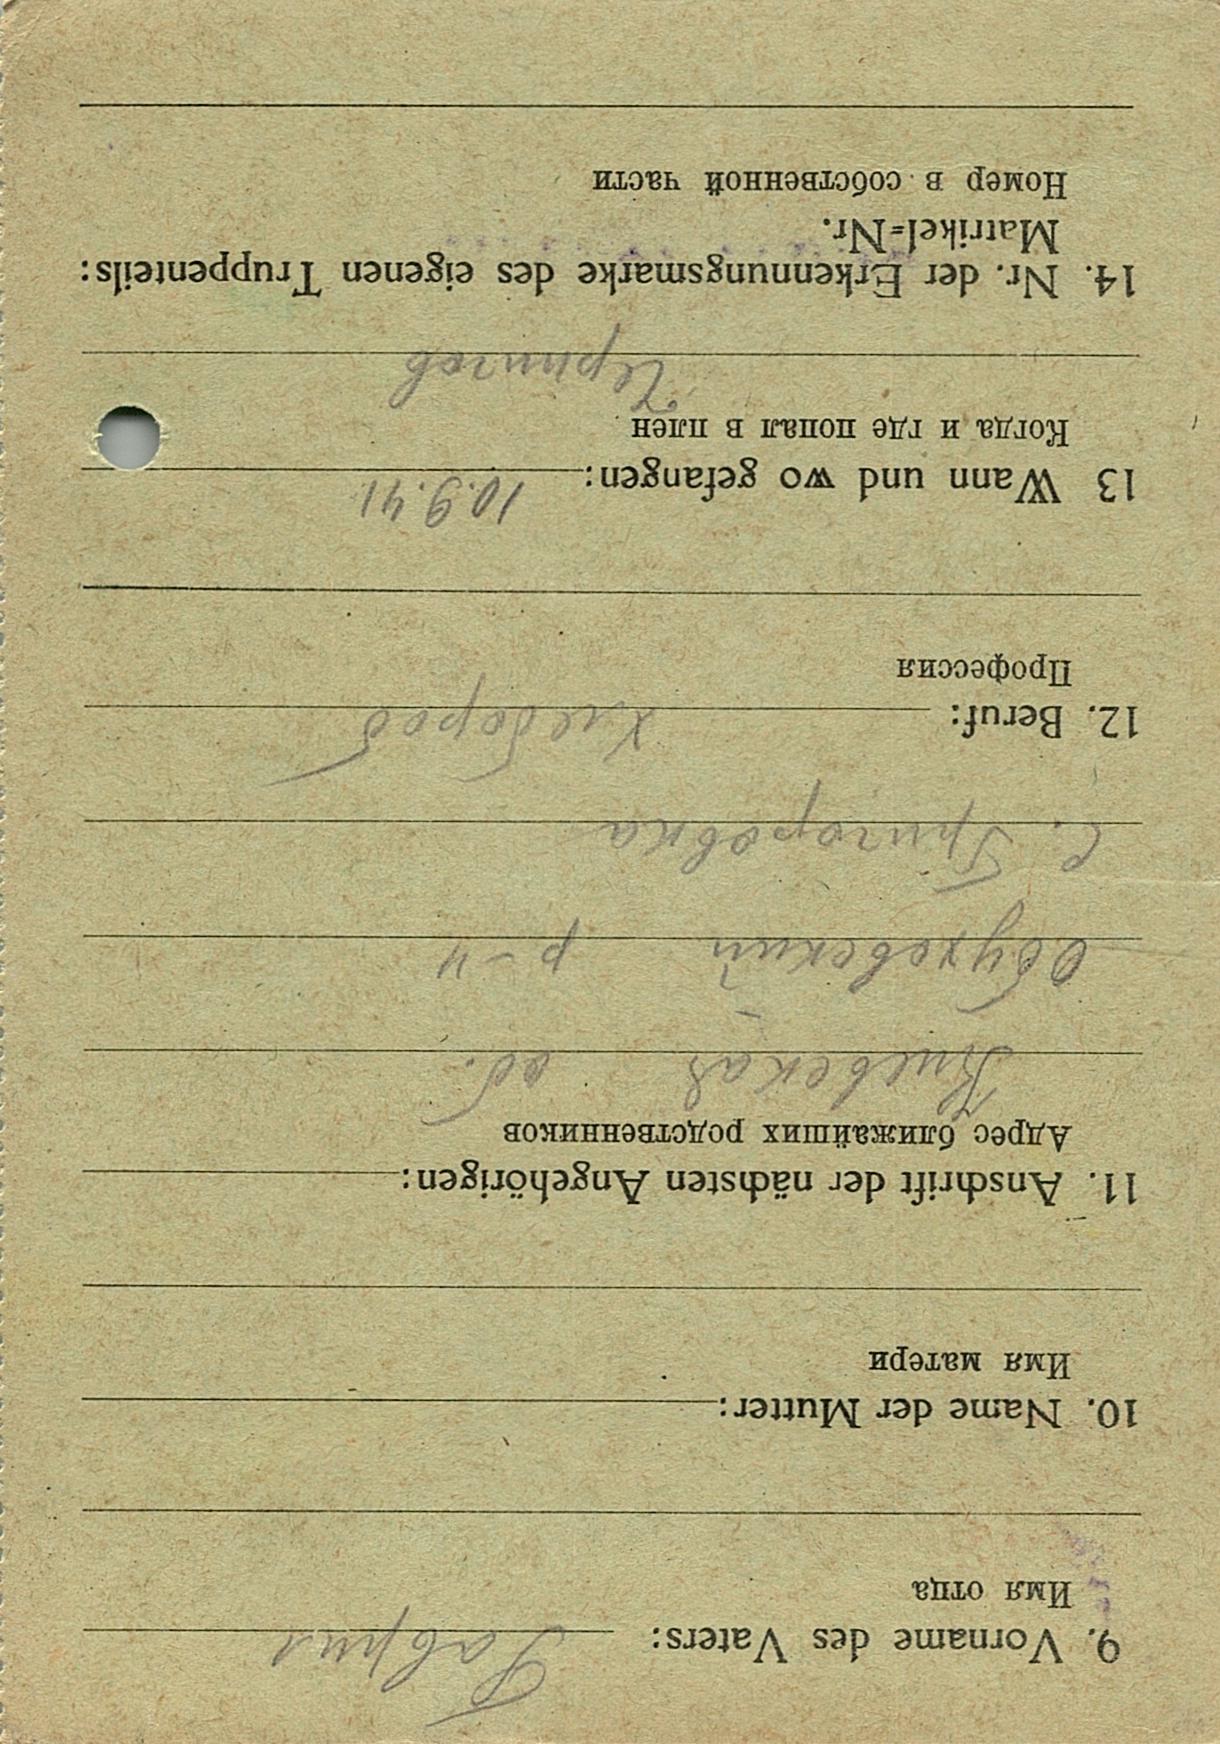 9. Vorname des Vaters: Гаврил
Имя отца
10. Name der Mutter:
Имя матери
11. Anschrift der nächsten Angehörigen:
Адрес ближайших родственников
Киевская об.
Обуховский р-н
с. Григоровка
12. Beruf: хлебороб
Профессия
13 Wann und wo gefangen: 10.9.41
Когда и где попал в плен
Чернигов
14. Nr. der Erkennungsmarke des eigenen Truppenteils:
Matrikel=Nr.
Номер в собственной части